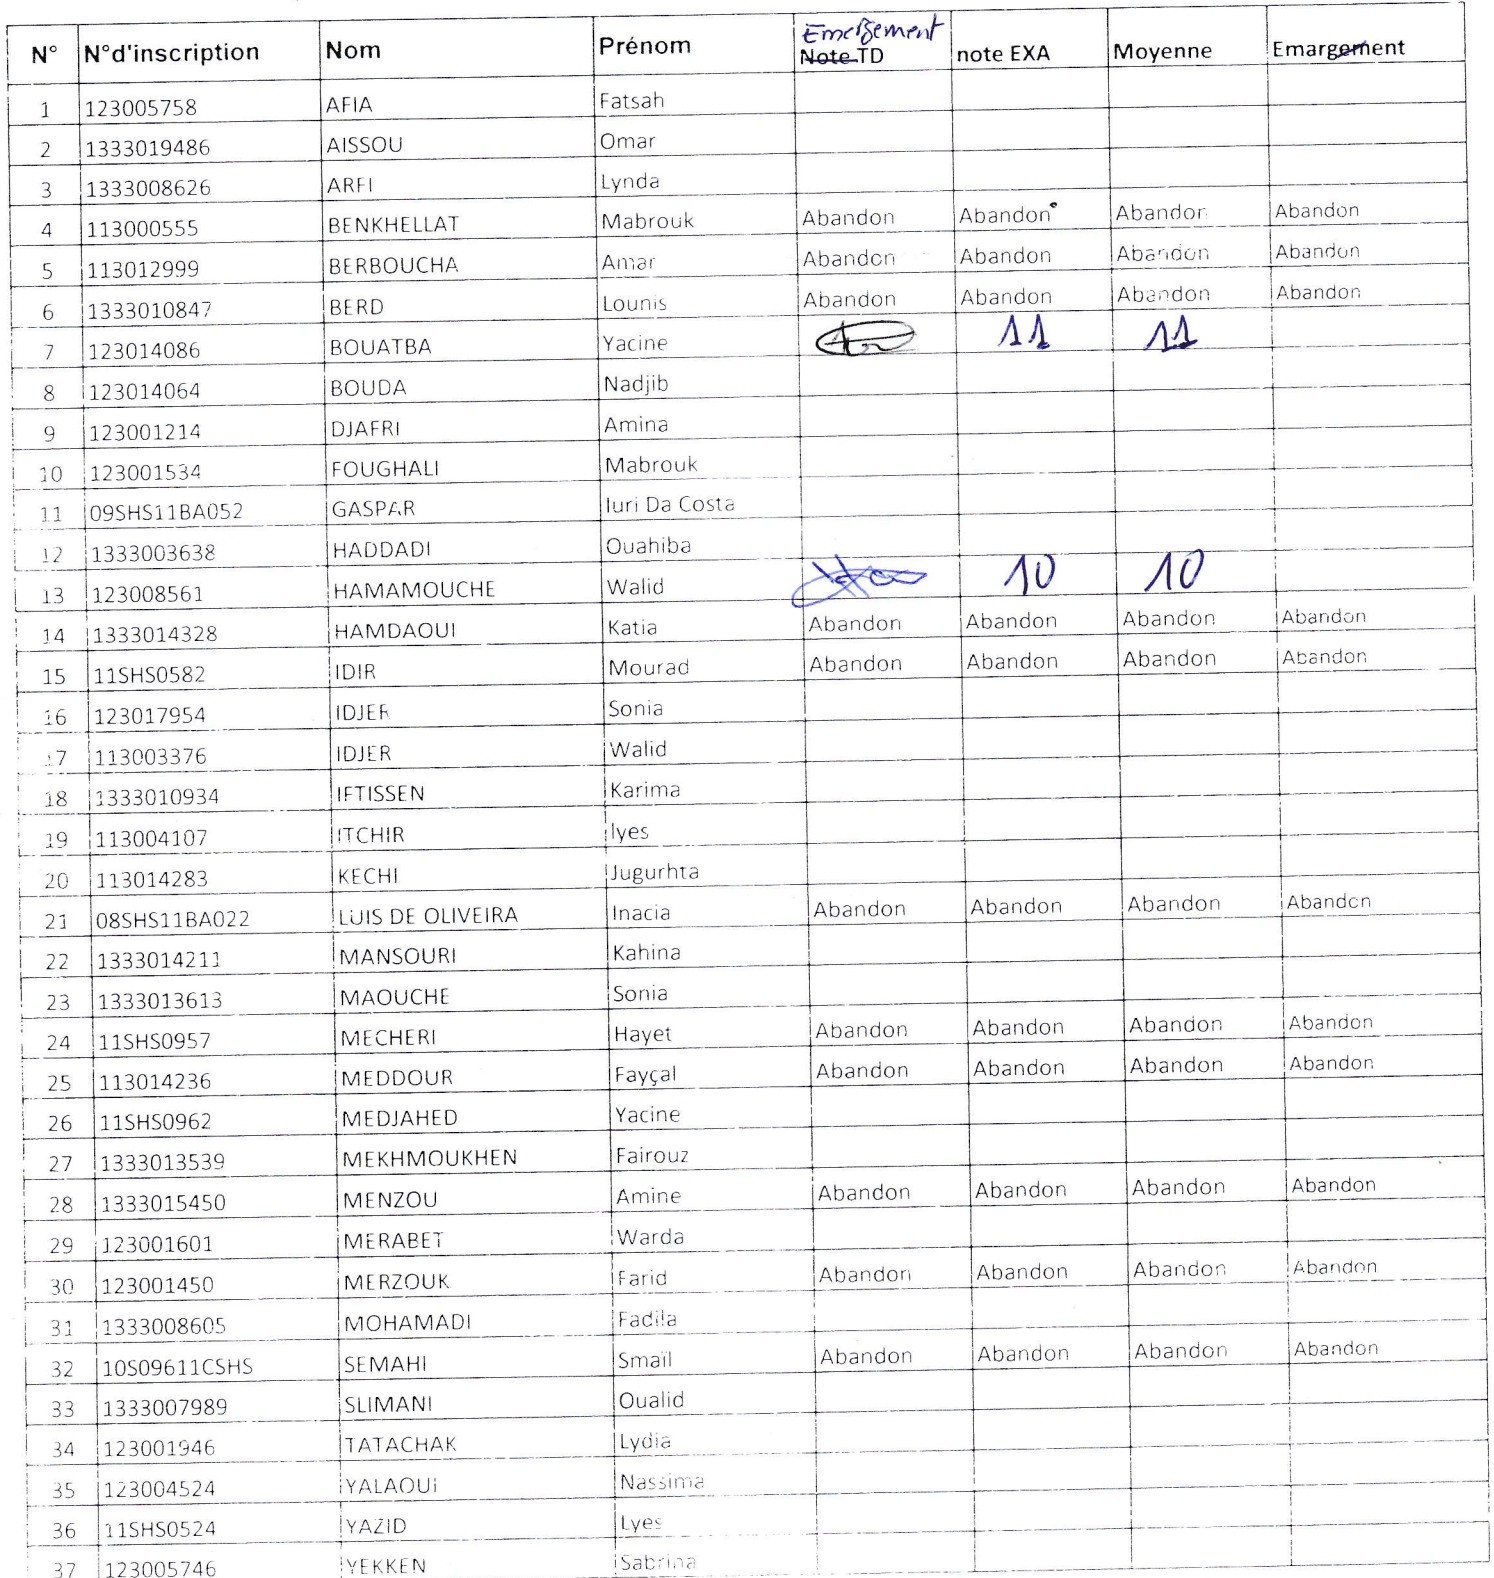 N° N°d'inscription Nom Prénom Emergement Note TD note EXA Moyenne Emargement
1 123005758 AFIA Fatsah
2 1333019486 AISSOU Omar
3 1333008626 ARFI Lynda
4 113000555 BENKHELLAT Mabrouk Abandon Abandon Abandon Abandon
5 113012999 BERBOUCHA Amar Abandon Abandon Abandon Abandon
6 1333010847 BERD Lounis Abandon Abandon Abandon Abandon
7 123014086 BOUATBA Yacine 11 11
8 123014064 BOUDA Nadjib
9 123001214 DJAFRI Amina
10 123001534 FOUGHALI Mabrouk
11 09SHS11BA052 GASPAR Iuri Da Costa
12 1333003638 HADDADI Ouahiba
13 123008561 HAMAMOUCHE Walid 10 10
14 1333014328 HAMDAOUI Katia Abandon Abandon Abandon Abandon
15 11SHS0582 IDIR Mourad Abandon Abandon Abandon Abandon
16 123017954 IDJER Sonia
17 113003376 IDJER Walid
18 1333010934 IFTISSEN Karima
19 113004107 ITCHIR Ilyes
20 113014283 KECHI Jugurhta
21 08SHS11BA022 LUIS DE OLIVEIRA Inacia Abandon Abandon Abandon Abandon
22 1333014211 MANSOURI Kahina
23 1333013613 MAOUCHE Sonia
24 11SHS0957 MECHERI Hayet Abandon Abandon Abandon Abandon
25 113014236 MEDDOUR Fayçal Abandon Abandon Abandon Abandon
26 11SHS0962 MEDJAHED Yacine
27 1333013539 MEKHMOUKHEN Fairouz
28 1333015450 MENZOU Amine Abandon Abandon Abandon Abandon
29 123001601 MERABET Warda
30 123001450 MERZOUK Farid Abandon Abandon Abandon Abandon
31 1333008605 MOHAMADI Fadila
32 10S09611CSHS SEMAHI Smaïl Abandon Abandon Abandon Abandon
33 1333007989 SLIMANI Oualid
34 123001946 TATACHAK Lydia
35 123004524 YALAOUI Nassima
36 11SHS0524 YAZID Lyes
37 123005746 YEKKEN Sabrina